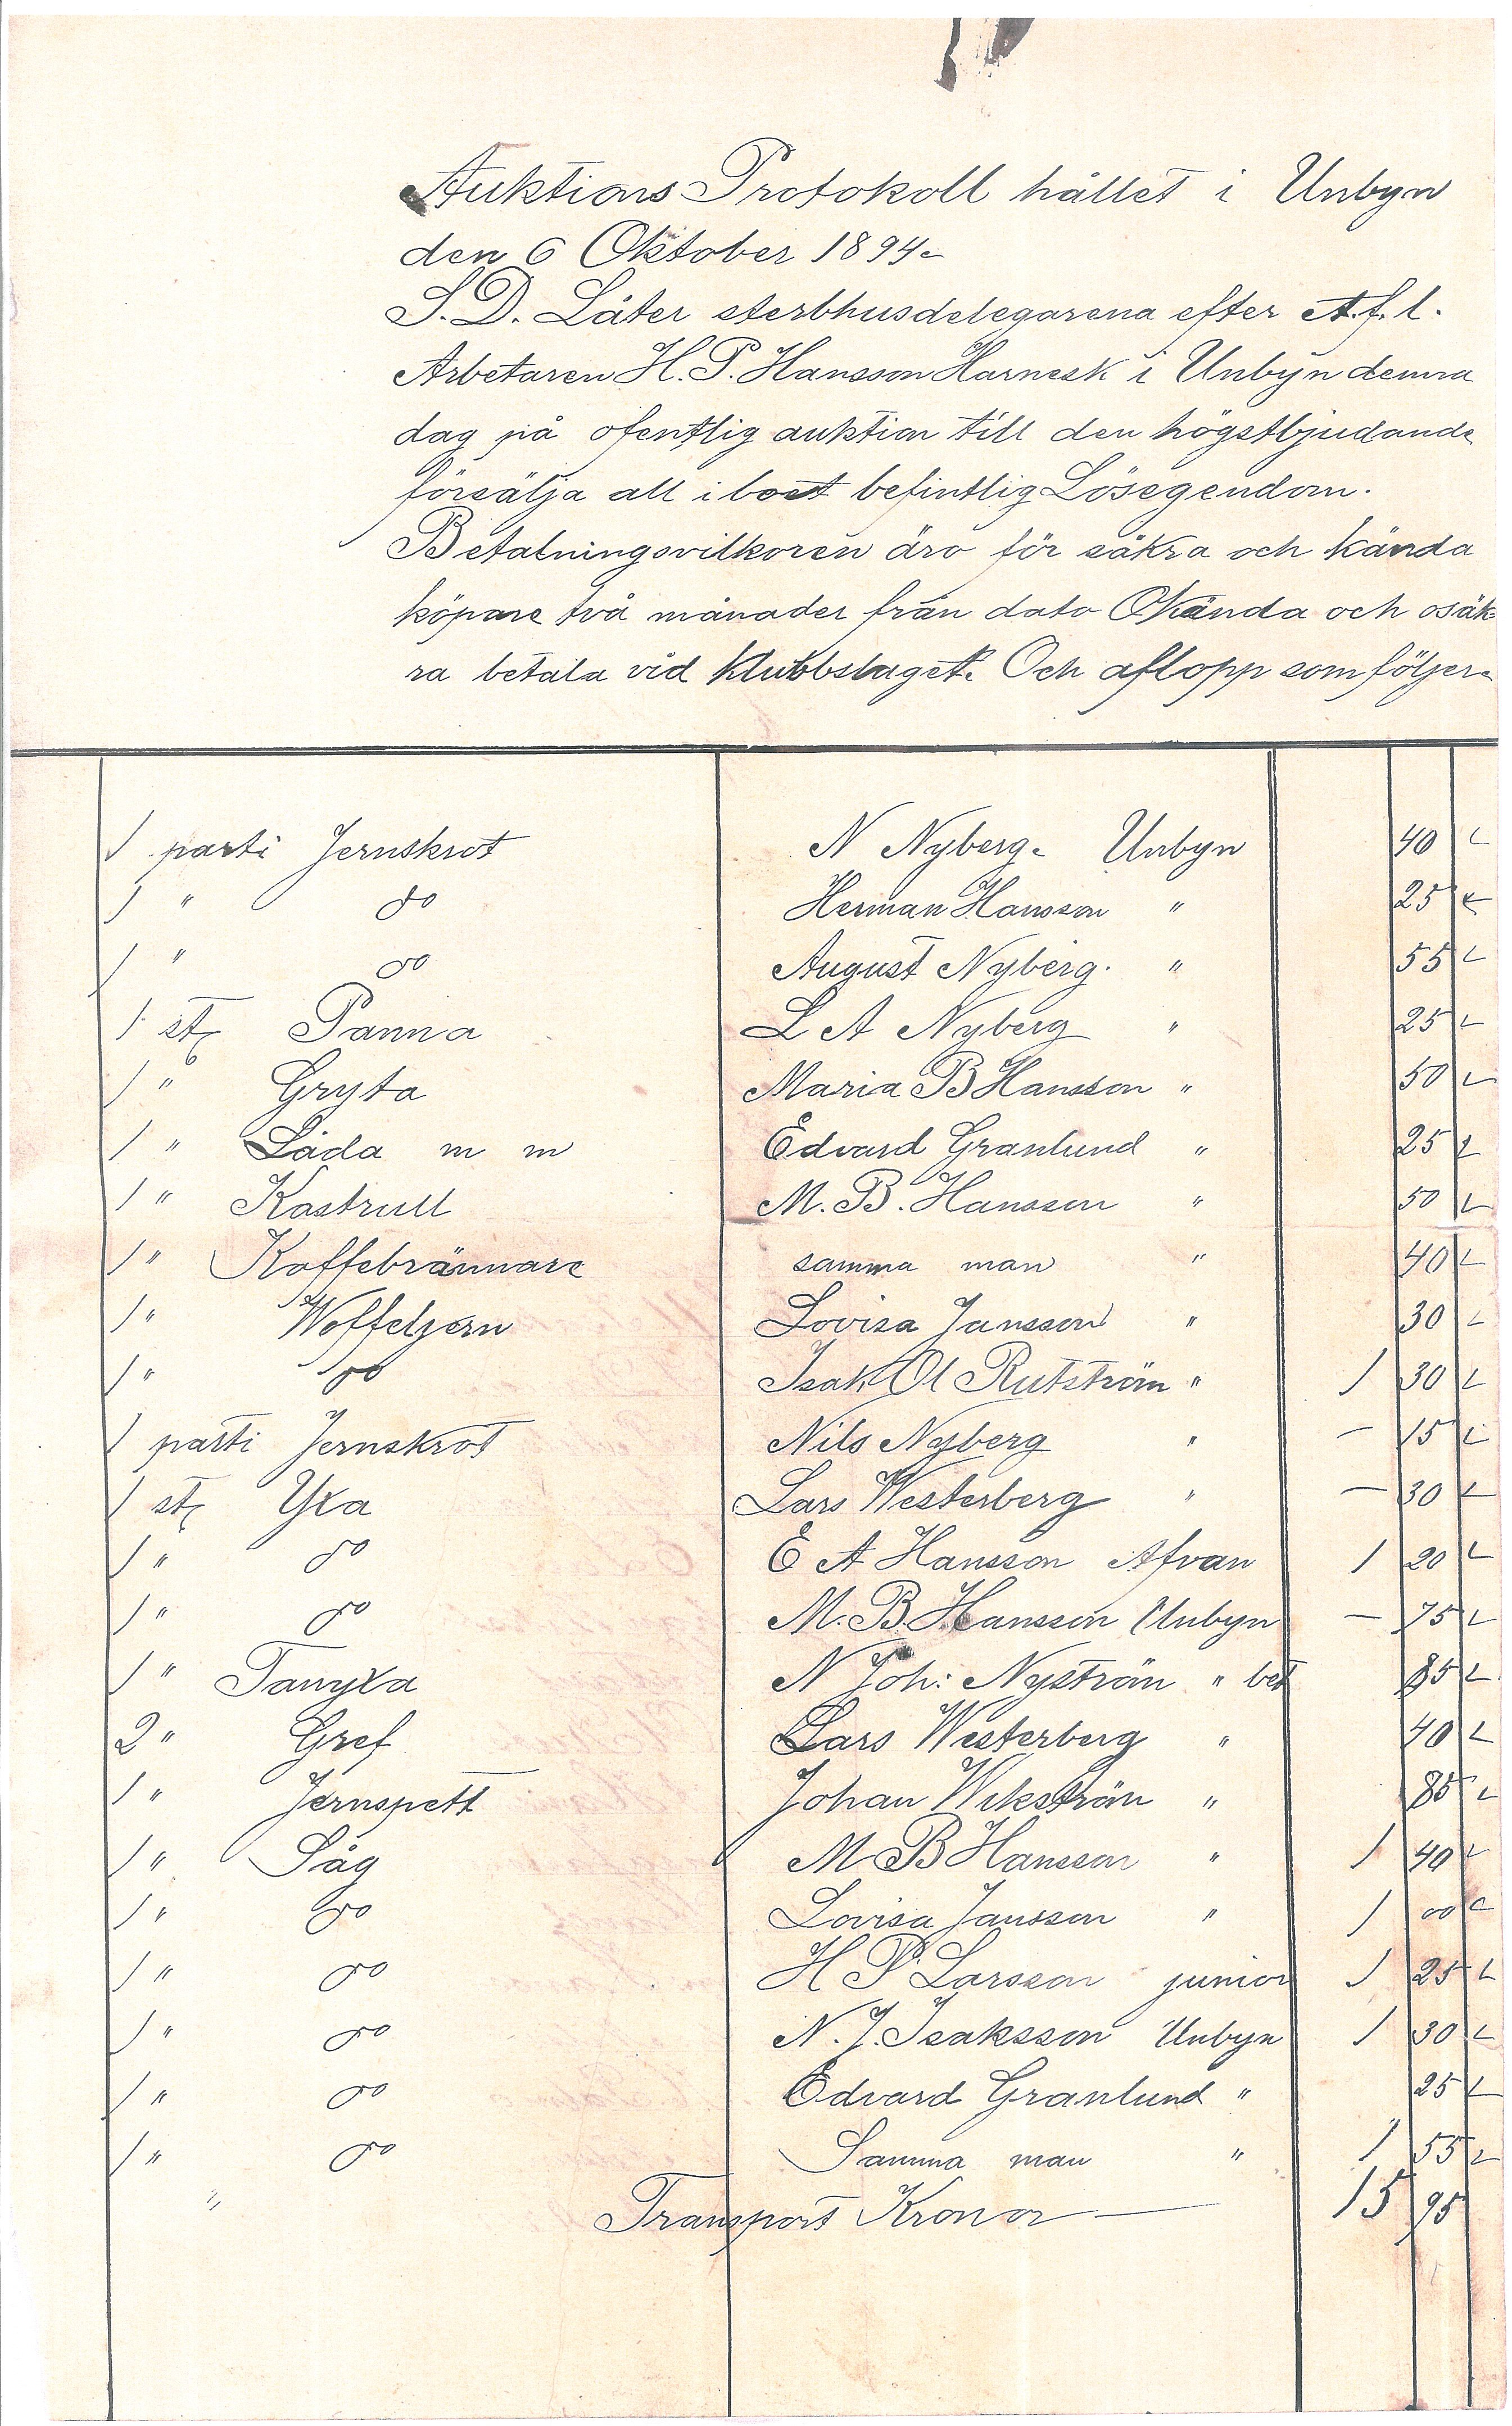 Auktions Protokoll hållet i Unbyn
den 6 Oktober 1894.
S.D. Låter sterbhusdelegarena efter A.f.l.
Arbetaren H.P. Hansson Harnesk i Unbyn denna
dag på ofentlig auktion till den högstbjudande
försälja all i boet befintlig Lösegendom.
Betalningsvilkoren äro för säkra och kända
köpare två månader från dato Okända och osäk-
ra betala vid klubbslaget. Och aflopp som följer.
1 parti Jernskrot N Nyberg. Unbyn 40
1 " do Herman Hansson " 25
1 " do August Nyberg. " 55
1 st Panna L A Nyberg " 25
1 " Gryta Maria B Hansson " 50
1 " Låda m m Edvard Granlund " 25
1 " Kastrull M. B. Hansson " 50
1 " Kaffebrännare samma man " 40
1 " Woffeljern Lovisa Jansson " 30
1 " do Isak Ol Rutström " 1 30
1 parti Jernskrot Nils Nyberg " — 15
1 st Yxa Lars Westerberg " — 30
1 " do E A Hansson Afvan 1 20
1 " do M. B. Hansson Unbyn — 75
1 " Tanyxa N Joh: Nyström " bet 85
2 " Gref Lars Westerberg " 40
1 " Jernspett Johan Wikström " 85
1 " Såg M B Hansson " 1 40
1 " do Lovisa Jansson " 1 00
1 " do H P Larsson junior 1 25
1 " do N. J. Isaksson Unbyn 1 30
1 " do Edvard Granlund " 25
1 " do Samma man " 1 55
" Transport Kronor — 15 95